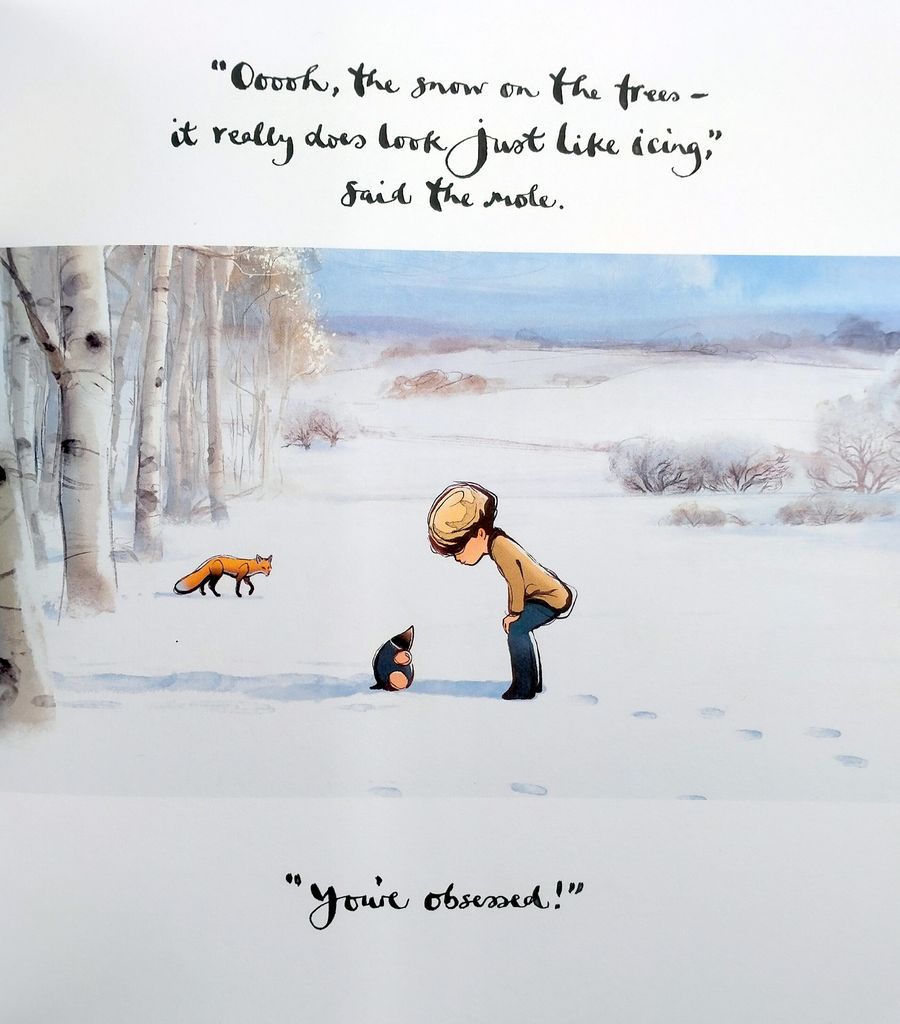 "Ooooh, the snow on the trees –
it really does look just like icing,"
said the mole.
"You're obsessed!"